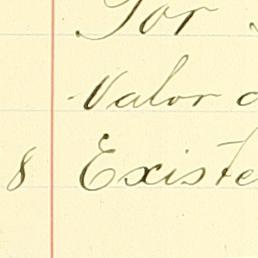 Por
Valor d
8 Existe